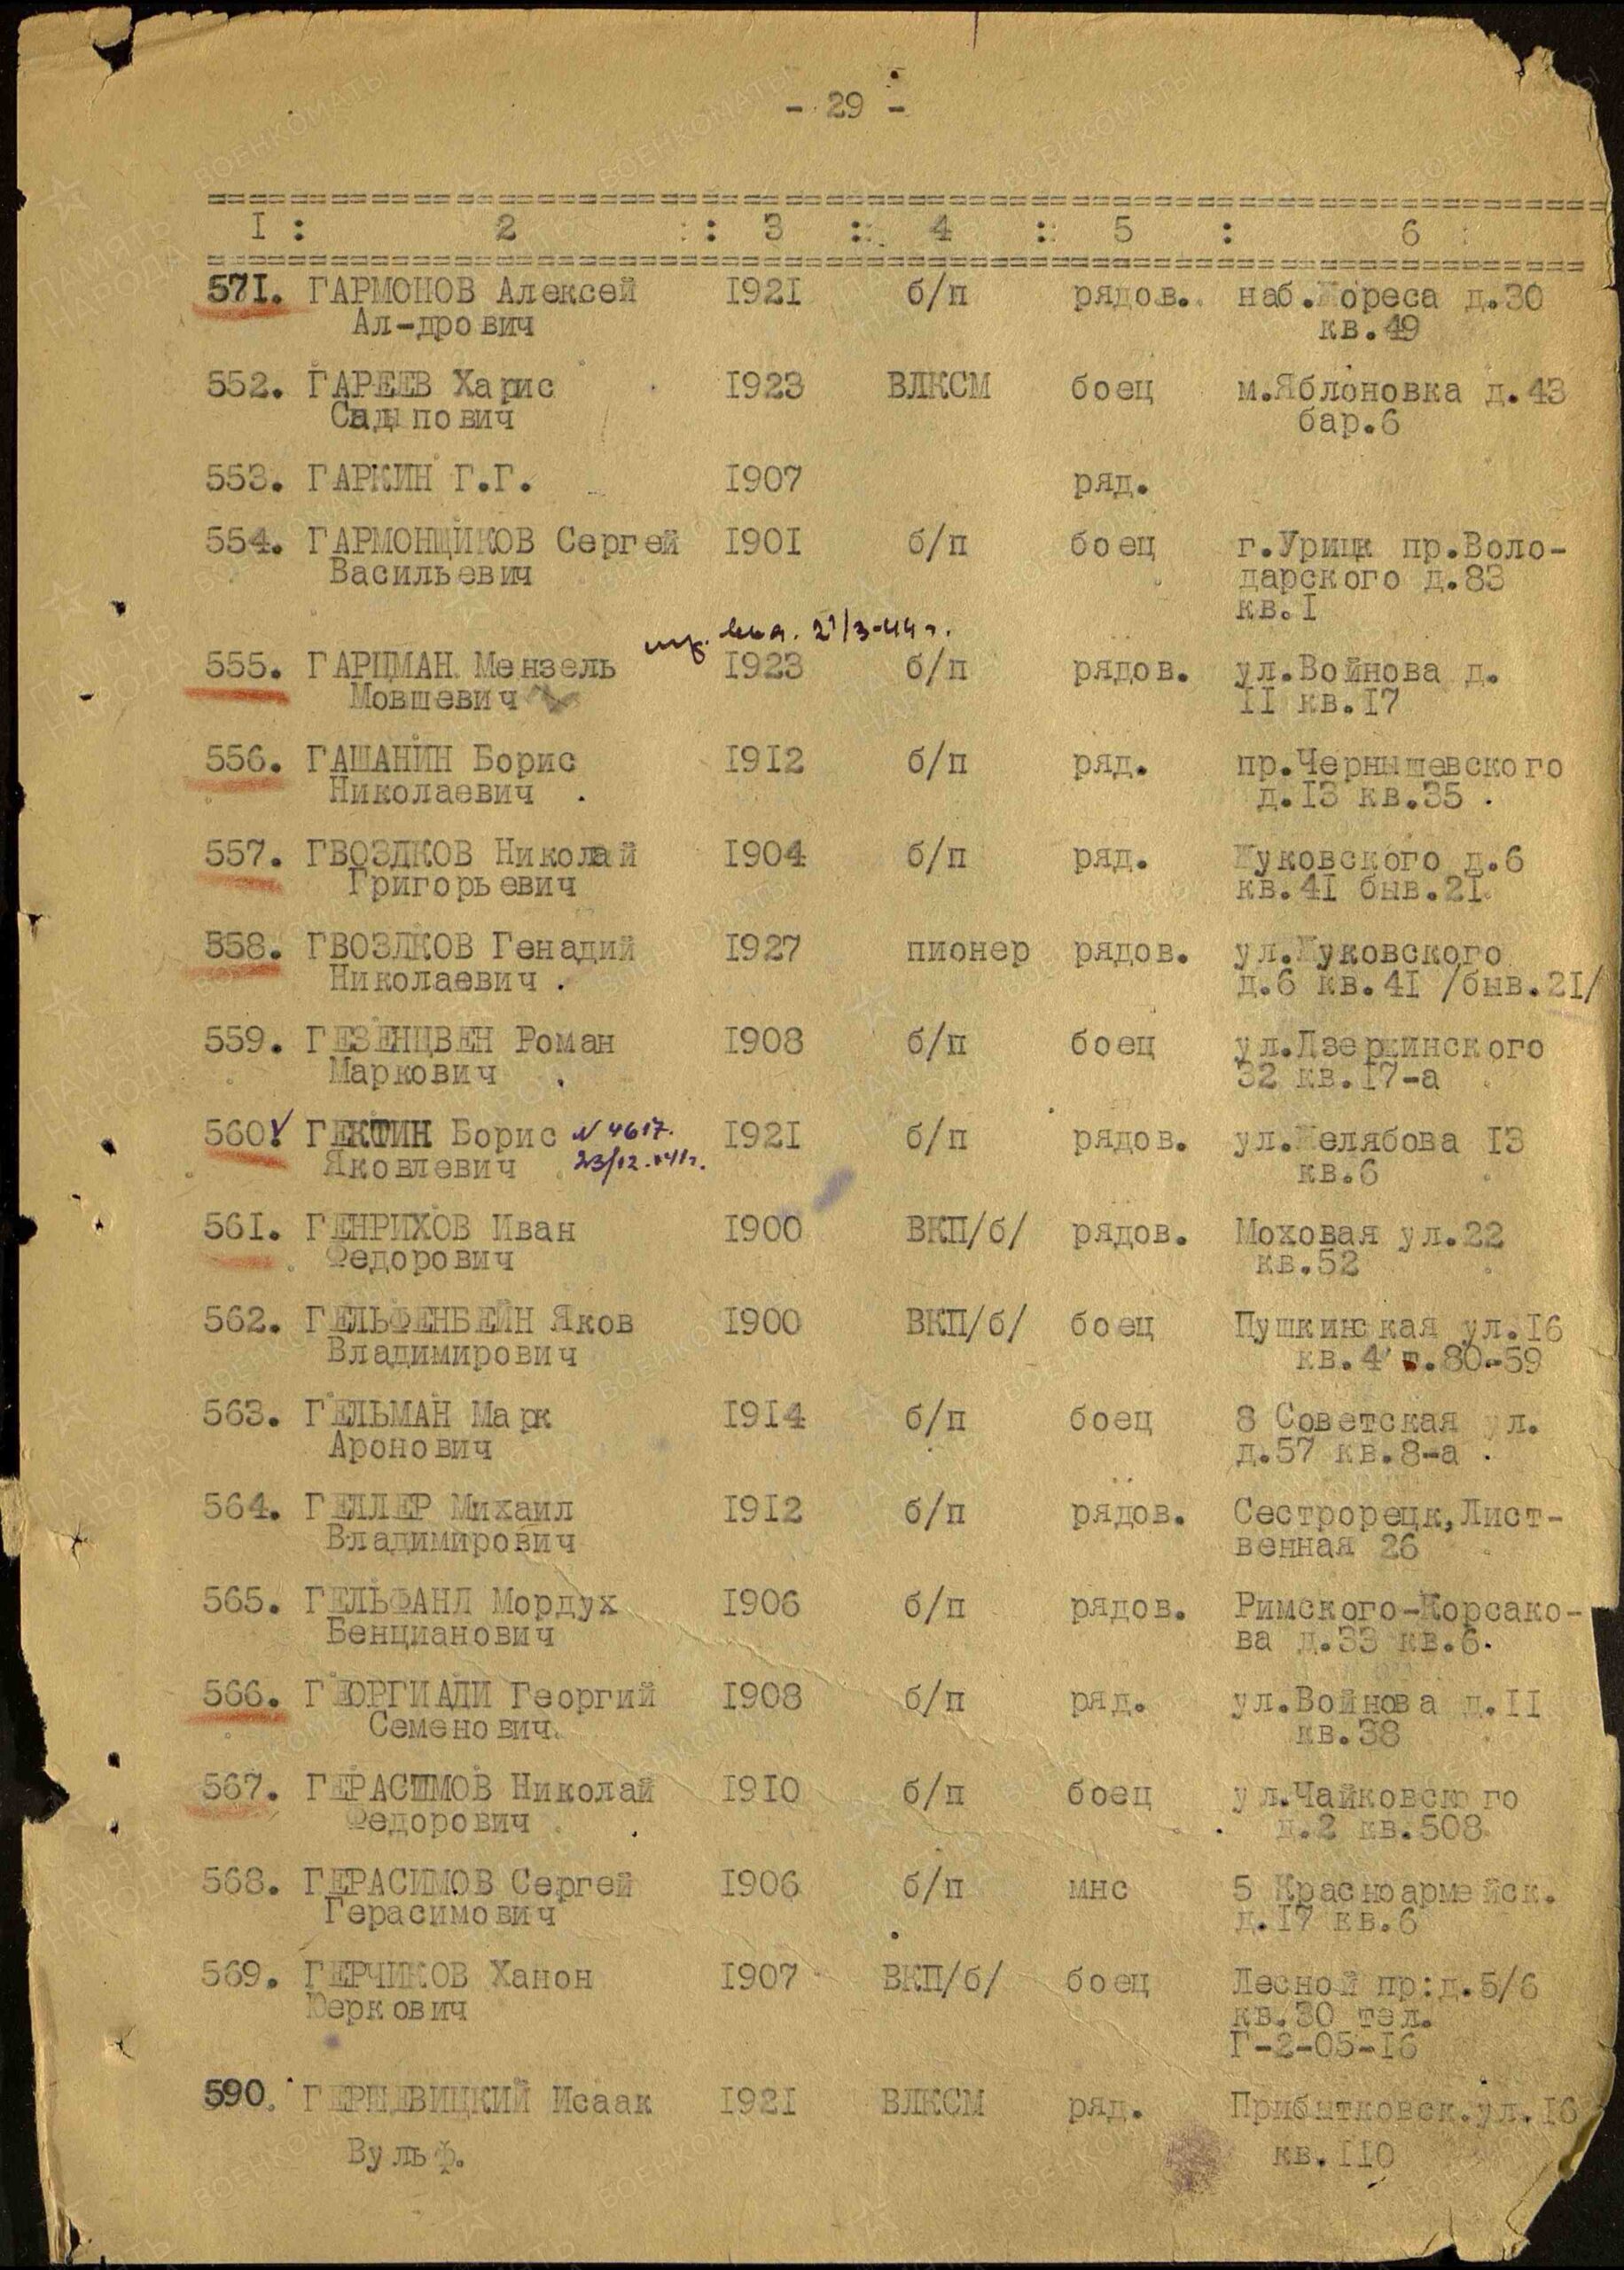 - 29 -
I : 2 : 3 : 4 : 5 : 6
571. ГАРМОНОВ Алексей 1921 б/п рядов. наб.Жореса д.30
Ал-дрович кв.49
552. ГАРЕЕВ Харис 1923 ВЛКСМ боец м.Яблоновка д.43
Садыпович бар.6
553. ГАРКИН Г.Г. 1907 ряд.
554. ГАРМОНЩИКОВ Сергей 1901 б/п боец г.Урицк пр.Воло-
Васильевич дарского д.83
кв.I
21/3-44 г.
555. ГАРЦМАН Мензель 1923 б/п рядов. ул.Войнова д.
Мовшевич II кв.17
556. ГАШАНИН Борис 1912 б/п ряд. пр.Чернышевского
Николаевич д.13 кв.35
557. ГВОЗДКОВ Николай 1904 б/п ряд. Жуковского д.6
Григорьевич кв.41 быв.21
558. ГВОЗДКОВ Генадий 1927 пионер рядов. ул.Жуковского
Николаевич д.6 кв.41 /быв.21/
559. ГЕЗЕНЦВЕН Роман 1908 б/п боец ул.Дзержинского
Маркович 32 кв.17-а
560. ГЕКТИН Борис N 4617. 1921 б/п рядов. ул.Желябова 13
Яковлевич 23/12.41г. кв.6
561. ГЕНРИХОВ Иван 1900 ВКП/б/ рядов. Моховая ул.22
Федорович кв.52
562. ГЕЛЬФЕНБЕЙН Яков 1900 ВКП/б/ боец Пушкинская ул.16
Владимирович кв.4 т.80-59
563. ГЕЛЬМАН Марк 1914 б/п боец 8 Советская ул.
Аронович д.57 кв.8-а
564. ГЕЛЛЕР Михаил 1912 б/п рядов. Сестрорецк,Лист-
Владимирович венная 26
565. ГЕЛЬФАНД Мордух 1906 б/п рядов. Римского-Корсако-
Бенцианович ва д.33 кв.6.
566. ГЕОРГИАДИ Георгий 1908 б/п ряд. ул.Войнова д.II
Семенович кв.38
567. ГЕРАСИМОВ Николай 1910 б/п боец ул.Чайковского
Федорович д.2 кв.508
568. ГЕРАСИМОВ Сергей 1906 б/п мнс 5 Красноармейск.
Герасимович д.17 кв.6
569. ГЕРЧИКОВ Ханон 1907 ВКП/б/ боец Лесной пр:д.5/6
Юеркович кв.30 тел.
Г-2-05-16
590. ГЕРШЕВИЦКИЙ Исаак 1921 ВЛКСМ ряд. Прибытковск.ул.16
Вульф. кв.110